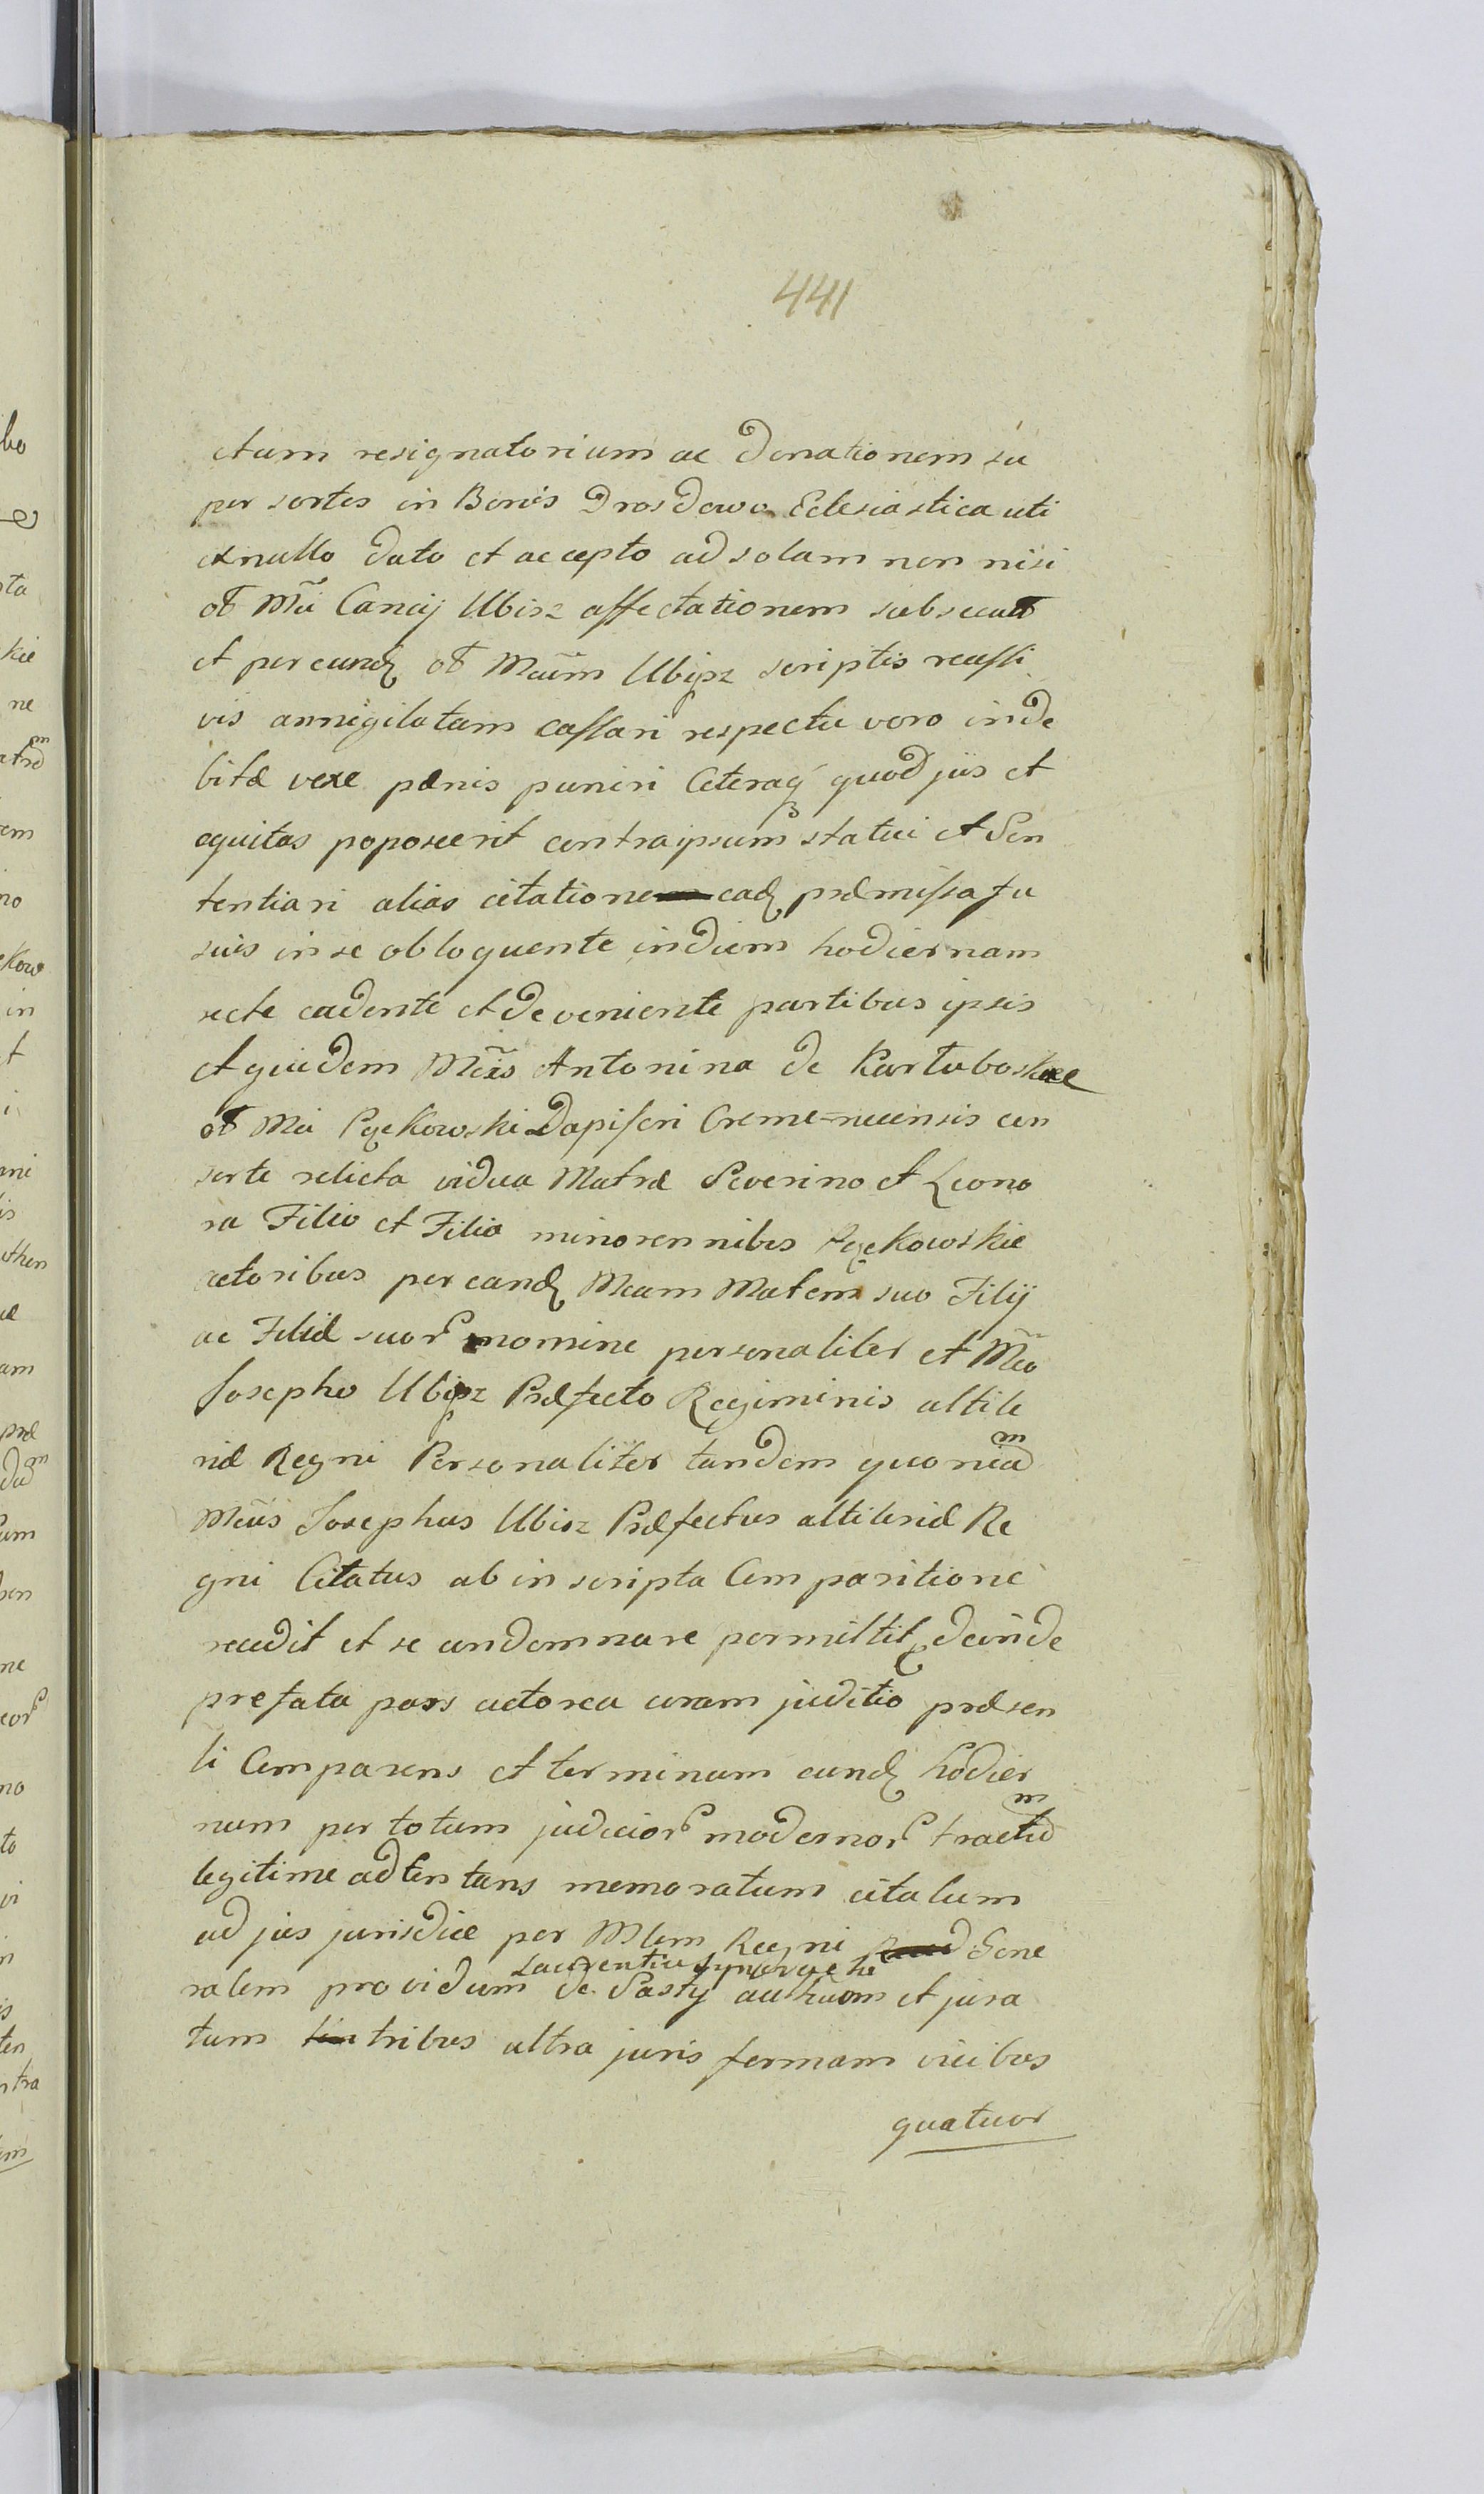 441
ctum resignatorium ac Donationem su
per sortes in Bonis Drosdowo Eclesiastica uti
ex nullo dato et accepto ad solam non nisi
ol Mci Cancij Ubisz affectationem subsecut
et per eund ol Mcum Ubisz scriptis reassi
vis annigilatam cassari respectu vero inde
bitæ vexe pænis puniri Ceteraq quod jus et
equitas poposcerit contra ipsum statui et Sen
tentiari alias citatione ead præmissa fu
suis in se obloquente in diem hodiernam
recte cadente et deveniente partibus ipsis
et quidem Mcis Antonina de Kartuboskie
ol Mci Pęckowski Dapiferi Creme=necensis con
sorte relicta vidua Matræ Severino et Leono
ra Filio et Filia minorennibus Pęckowskie
actoribus per eand Mcam Matem suo Filij
ac Filiæ suor nomine personaliter et Mco
Josepho Ubisz Præfecto Regiminis altile
riæ Regni Personaliter tandem quoniam
Mcus Josephus Ubisz Præfectus altileriæ Re
gni Citatus ab inscripta Comparitione
recedit et se condemnare permittit deinde
prefata pars actorea coram juditio præsen
ti Comparens et terminum eund hodier
num per totum judicior modernor tractum
legitime adtentans memoratum citatum
ad jus jurisdice per Mlem Regni Gene
Laurentiu
ralem providum de Pasty authum et jura
tum tribus ultra juris formam vicibus
quatuor